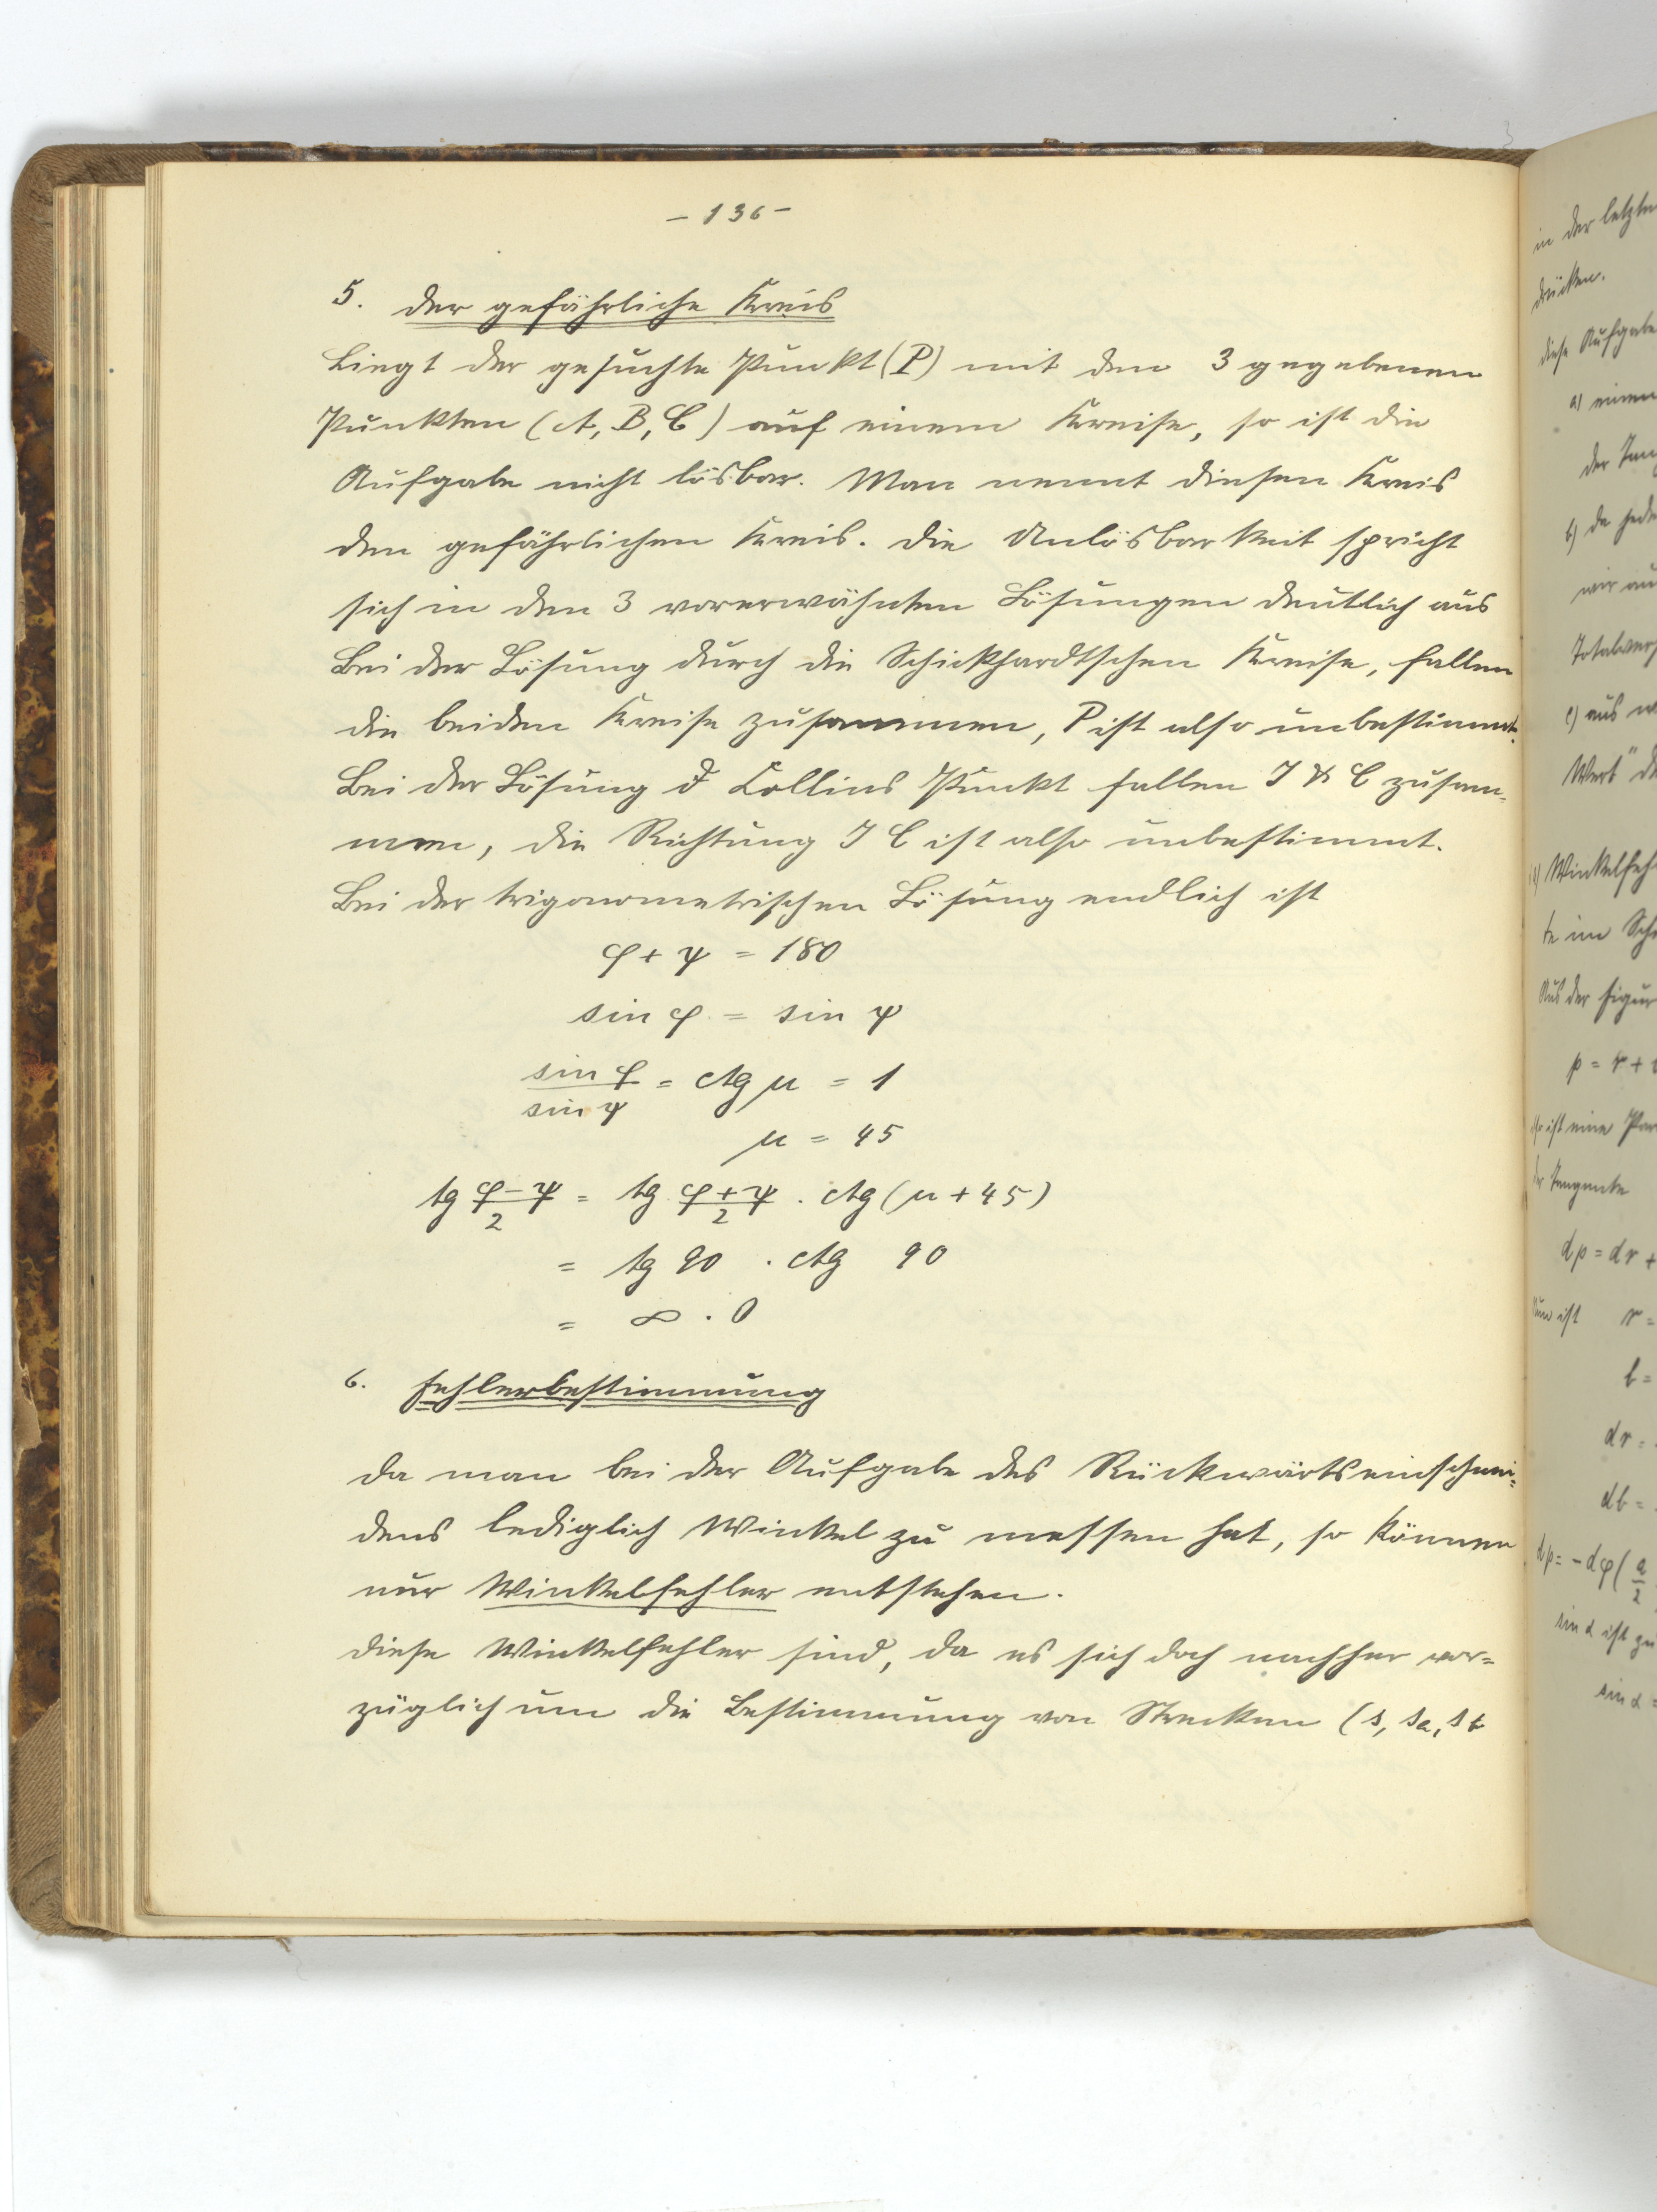 - 136 -
5. Der gefährliche Kreis
Liegt der gesuchte Punkt (P) mit den 3 gegebenen
Punkten (A, B, C) auf einem Kreise, so ist die
Aufgabe nicht lösbar. Man nennt diesen Kreis
den gefährlichen Kreis. Die Unlösbarkeit spricht
sich in den 3 vorerwähnten Lösungen deutlich aus
Bei der Lösung durch die Schickhardtschen Kreise, fallen
die beiden Kreise zusammen, P ist also unbestimmt.
Bei der Lösung d Collins Punkt fallen J & C zusam-
men, die Richtung J C ist also unbestimmt.
Bei der trigonometrischen Lösung endlich ist
φ + ψ = 180
sin φ = sin ψ
sin φ / sin ψ = ctg μ = 1
μ = 45
tg (φ - ψ)/2 = tg (φ + ψ)/2 . ctg (μ + 45)
= tg 90 . ctg 90
= ∞ . 0
6. Fehlerbestimmung
Da man bei der Aufgabe des Rückwärtseinschnei=
dens lediglich Winkel zu messen hat, so können
nur Winkelfehler entstehen.
Diese Winkelfehler sind, da es sich doch nachher vor=
züglich um die Bestimmung von Strecken (s, sa, sb
in der letzten
drücken.
diese Aufgabe
a) einen
der
b) da jede
wir
c) aus
Wert" de
Winkelfeh
te im Sch
Aus der Figur
p = r +
ist eine
der Tangente
dp = dr +
Nun ist r =
b =
dr =
db =
dp = - dφ ( a/2
sin α ist
sin α =